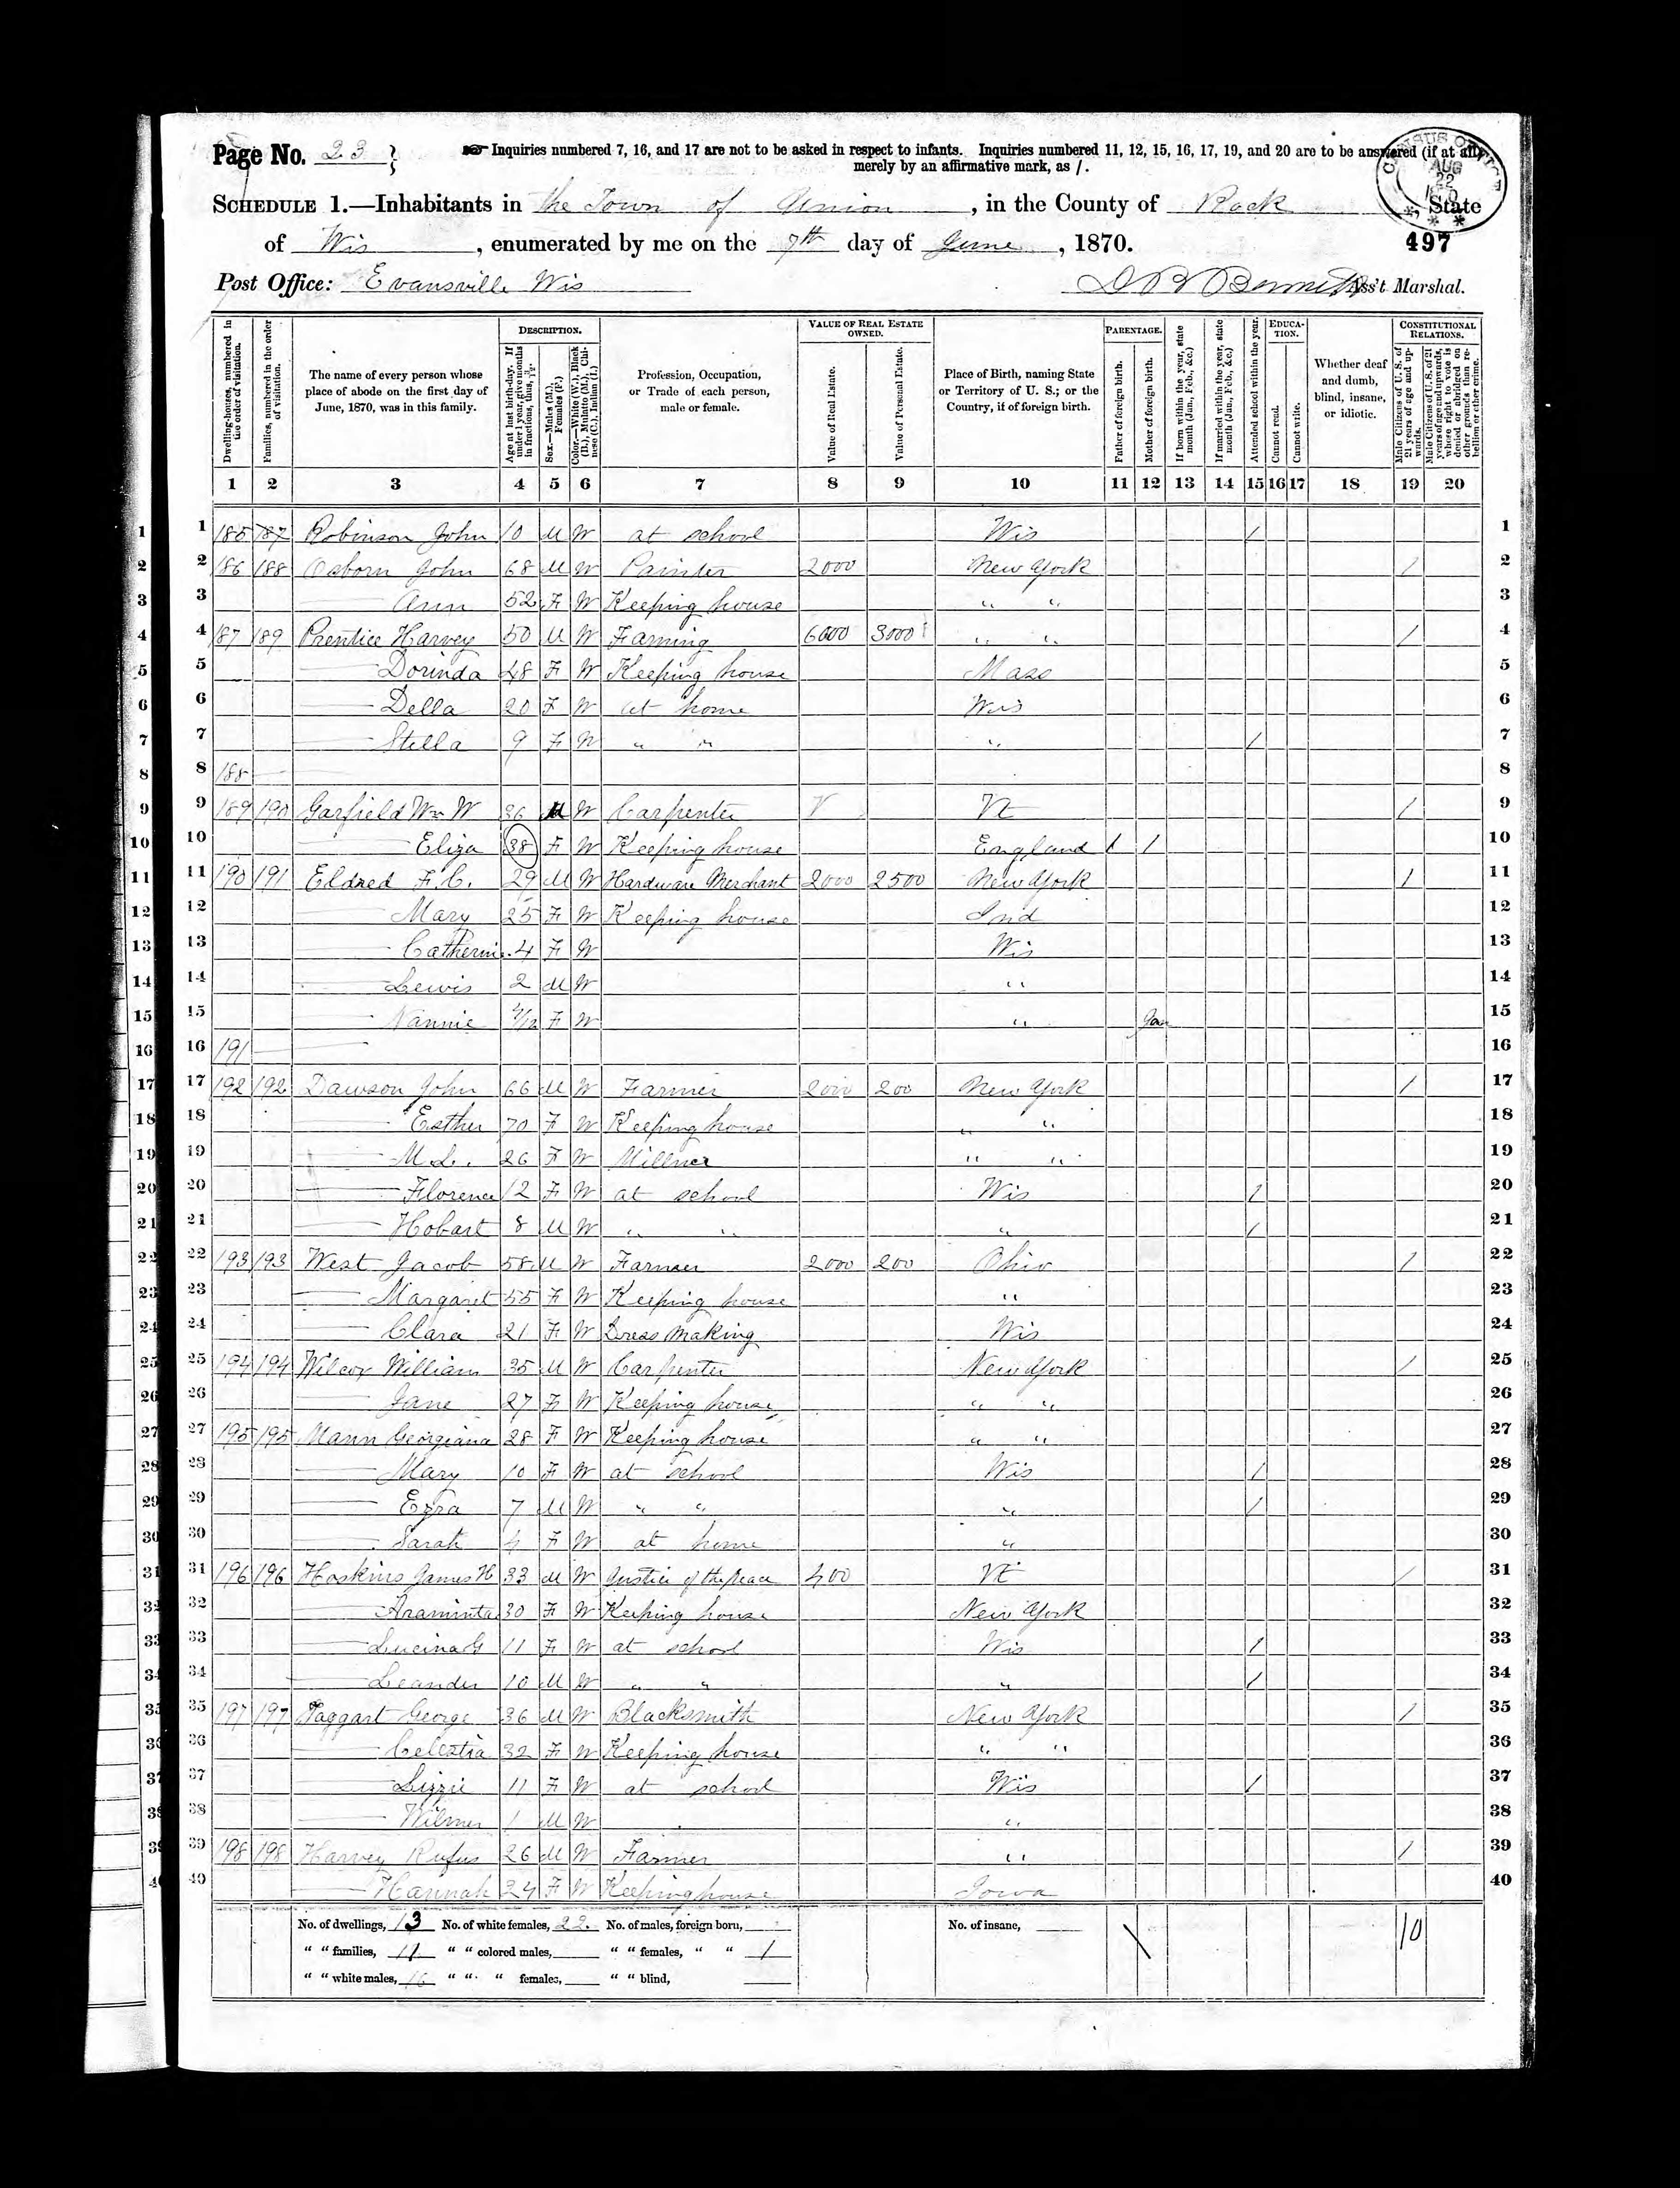 Page No. 23
Inquiries numbered 7, 16, and 17 are not to be asked in respect to infants. Inquiries numbered 11, 12, 15, 16, 17, 19, and 20 are to be answered (if at all)
merely by an affirmative mark, as /.
CENSUS OFFICE AUG 22
SCHEDULE 1.—Inhabitants in the Town of Union, in the County of Rock State
of Wis, enumerated by me on the 7th day of June, 1870.
497
Post Office: Evansville Wis
Bennett Ass't Marshal.
DESCRIPTION. VALUE OF REAL ESTATE OWNED. PARENTAGE. EDUCATION. CONSTITUTIONAL RELATIONS.
Dwelling-houses, numbered in the order of visitation.
Families, numbered in the order of visitation.
The name of every person whose place of abode on the first day of June, 1870, was in this family.
Age at last birth-day. If under 1 year, give months in fractions, thus, 3/12
Sex.—Males (M.), Females (F.)
Color.—White (W.), Black (B.), Mulatto (M.), Chinese (C.), Indian (I.)
Profession, Occupation, or Trade of each person, male or female.
Value of Real Estate.
Value of Personal Estate.
Place of Birth, naming State or Territory of U. S.; or the Country, if of foreign birth.
Father of foreign birth.
Mother of foreign birth.
If born within the year, state month (Jan., Feb., &c.)
If married within the year, state month (Jan., Feb., &c.)
Attended school within the year.
Cannot read.
Cannot write.
Whether deaf and dumb, blind, insane, or idiotic.
Male Citizens of U. S. of 21 years of age and upwards.
Male Citizens of U. S. of 21 years of age and upwards, whose right to vote is denied or abridged on other grounds than rebellion or other crime.
1 2 3 4 5 6 7 8 9 10 11 12 13 14 15 16 17 18 19 20
1 185 187 Robinson John 10 M W at school Wis / 1
2 186 188 Osborn John 68 M W Painter 2000 New York / 2
3 Ann 52 F W Keeping house " " 3
4 187 189 Prentice Harvey 50 M W Farming 6000 3000 " " / 4
5 Dorinda 48 F W Keeping house Mass 5
6 Della 20 F W at home Wis 6
7 Stella 9 F W " " " / 7
8 188 8
9 189 190 Garfield Wm W 36 M W Carpenter Vt / 9
10 Eliza 38 F W Keeping house England / / 10
11 190 191 Eldred F. C. 29 M W Hardware Merchant 2000 2500 New York / 11
12 Mary 25 F W Keeping house Ind 12
13 Catherine 4 F W Wis 13
14 Lewis 2 M W " 14
15 Nannie 4/12 F W " Jan 15
16 191 16
17 192 192 Dawson John 66 M W Farmer 2000 200 New York / 17
18 Esther 70 F W Keeping house " " 18
19 M L. 26 F W Millner " " 19
20 Florence 12 F W at school Wis / 20
21 Hobart 8 M W " " " / 21
22 193 193 West Jacob 58 M W Farmer 2000 200 Ohio / 22
23 Margaret 55 F W Keeping house " 23
24 Clara 21 F W Dress Making Wis 24
25 194 194 Wilcox William 35 M W Carpenter New York / 25
26 Jane 27 F W Keeping house " " 26
27 195 195 Mann Georgiana 28 F W Keeping house " " 27
28 Mary 10 F W at school Wis / 28
29 Ezra 7 M W " " " / 29
30 Sarah 4 F W at home " 30
31 196 196 Hoskins James H 33 M W Justice of the Peace 400 Vt / 31
32 Araminta 30 F W Keeping house New York 32
33 Lucina G 11 F W at school Wis / 33
34 Leander 10 M W " " " / 34
35 197 197 Taggart George 36 M W Blacksmith New York / 35
36 Celestia 32 F W Keeping house " " 36
37 Lizzie 11 F W at school Wis / 37
38 Wilmer 1 M W " 38
39 198 198 Harvey Rufus 26 M W Farmer " / 39
40 Hannah 24 F W Keeping house Iowa 40
No. of dwellings, 13 No. of white females, 22 No. of males, foreign born, No. of insane, 10
" " families, 11 " " colored males, " " females, " " 1
" " white males, 16 " " " females, " " blind,